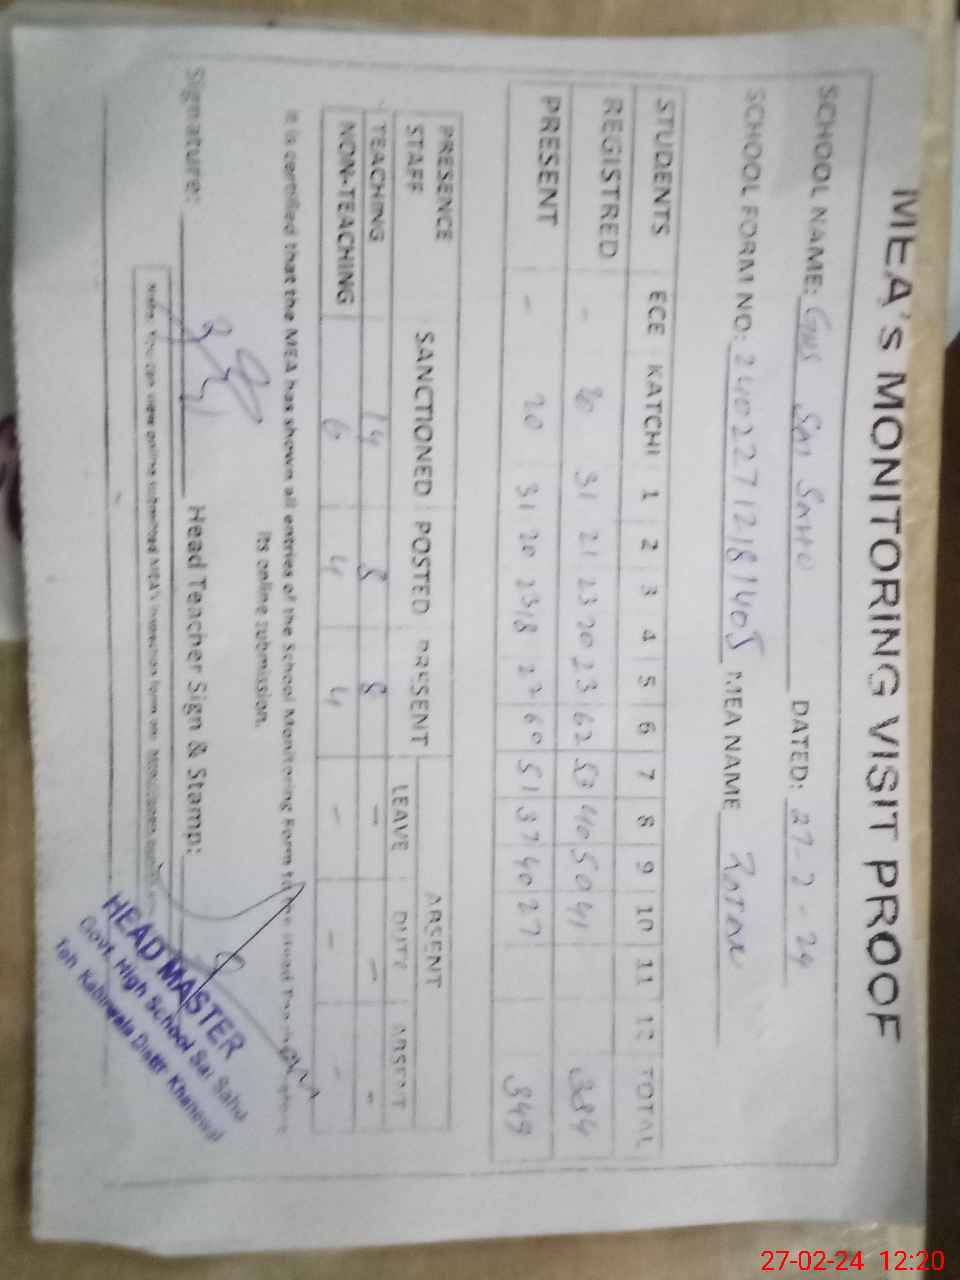 MEA's MONITORING VISIT PROOF
SCHOOL NAME: GHS Sai Saho DATED: 27-2-24
SCHOOL FORM NO: 24022712181405 MEA NAME
STUDENTS ECE KATCHI 1 2 3 4 5 6 7 8 9 10 11 12 TOTAL
REGISTRED - 20 31 21 23 20 23 62 53 40 50 41 384
PRESENT - 20 31 20 23 18 22 60 51 37 40 27 349
PRESENCE STAFF SANCTIONED POSTED PRESENT ABSENT
LEAVE DUTY ABSENT
TEACHING 14 8 8 - - -
NON-TEACHING 6 4 4 - - -
It is certified that the MEA has shown all entries of the School Monitoring Form to the Head Teacher before
its online submission.
Signature: Head Teacher Sign & Stamp:
Note: You can view online submitted MEA's inspection form on:
HEAD MASTER
Govt. High School Sai Sahu
Teh. Kabirwala Distt. Khanewal
27-02-24 12:20